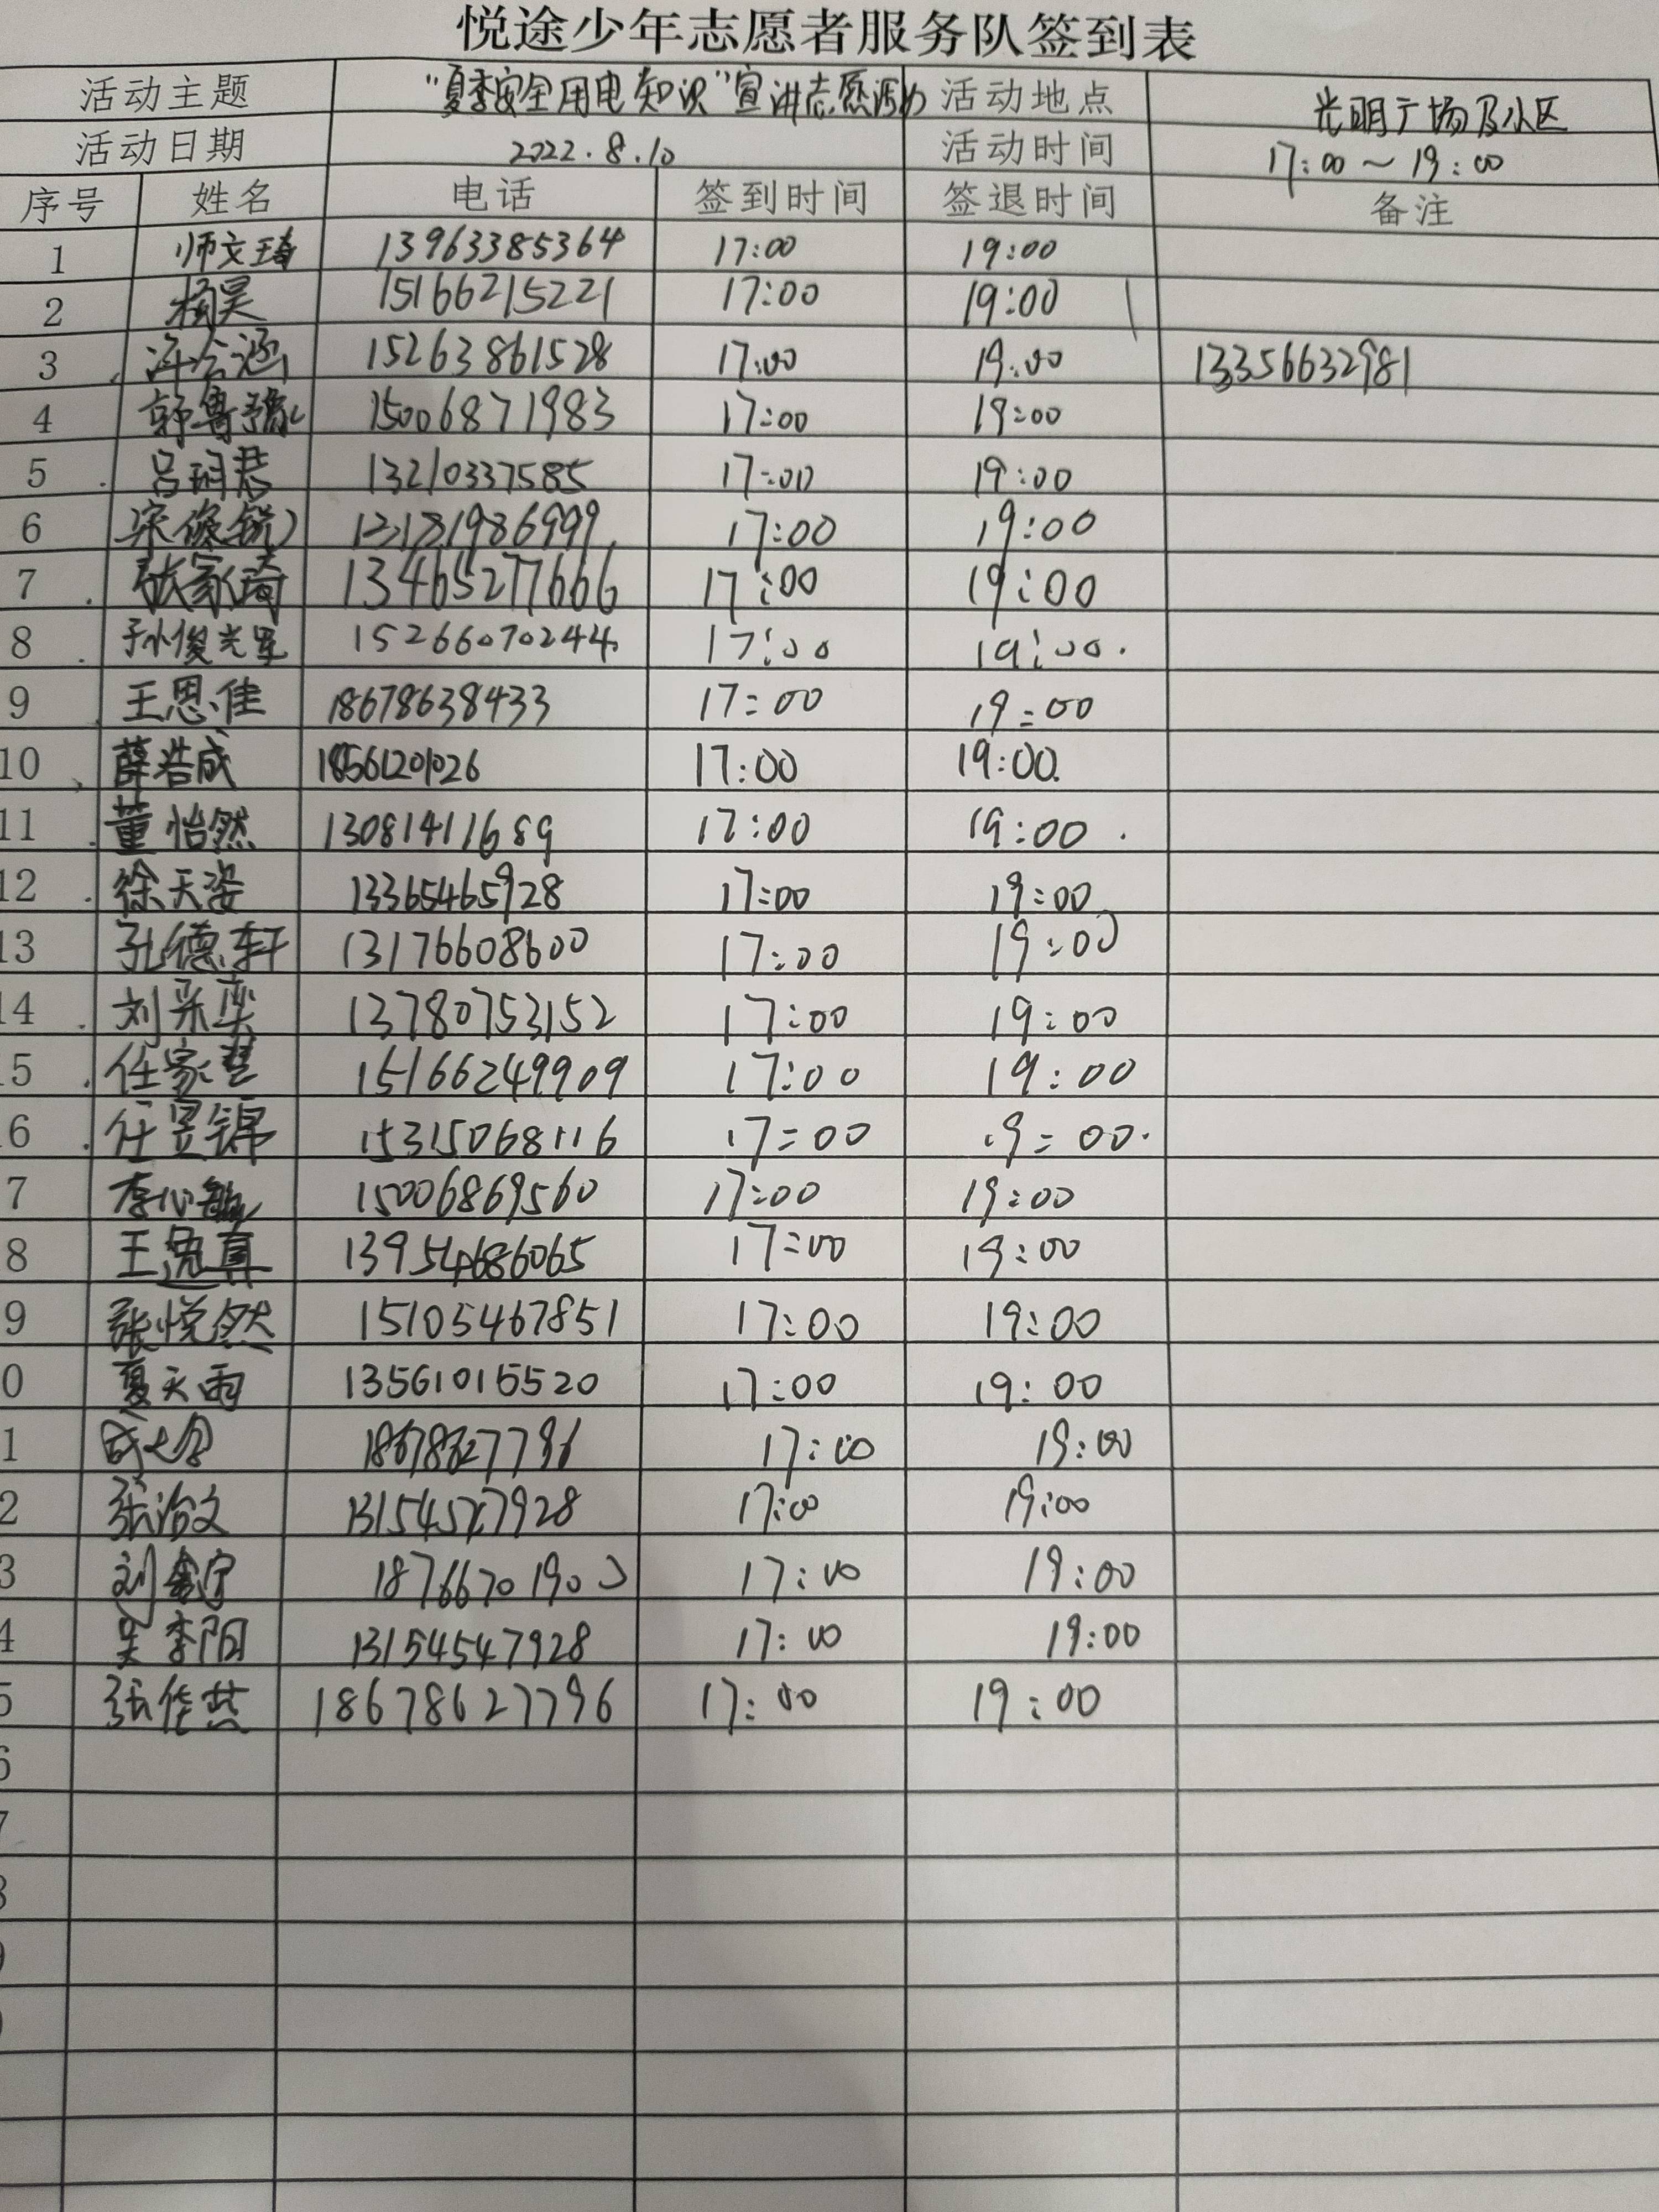 悦途少年志愿者服务队签到表
活动主题 "夏季安全用电知识"宣讲志愿活动 活动地点 光明广场及小区
活动日期 2022.8.10 活动时间 17:00~19:00
序号 姓名 电话 签到时间 签退时间 备注
1 师文琦 13963385364 17:00 19:00
2 杨昊 15166215221 17:00 19:00
3 15263861528 17:00 19:00 13356632981
4 15006871983 17:00 19:00
5 吕玥君 13210337585 17:00 19:00
6 17:00 19:00
7 张家琦 13465277666 17:00 19:00
8 孙俊光星 15266070244 17:00 19:00
9 王思佳 18678638433 17:00 19:00
10 薛浩成 18561201026 17:00 19:00
11 董怡然 13081411689 17:00 19:00
12 徐天姿 13365465928 17:00 19:00
13 孔德轩 13176608600 17:00 19:00
14 刘采奕 13780753152 17:00 19:00
5 任家慧 15166249909 17:00 19:00
6 任昱锦 15315068116 17:00 19:00
7 李心 15006869560 17:00 19:00
8 王逸真 13954686065 17:00 19:00
9 张悦然 15105467851 17:00 19:00
0 夏天雨 13561015520 17:00 19:00
1 17:00 19:00
2 张治文 17:00 19:00
3 刘鑫宁 18766701900 17:00 19:00
4 吴季阳 13154547928 17:00 19:00
5 张佳燕 18678627796 17:00 19:00
6
7
8
9